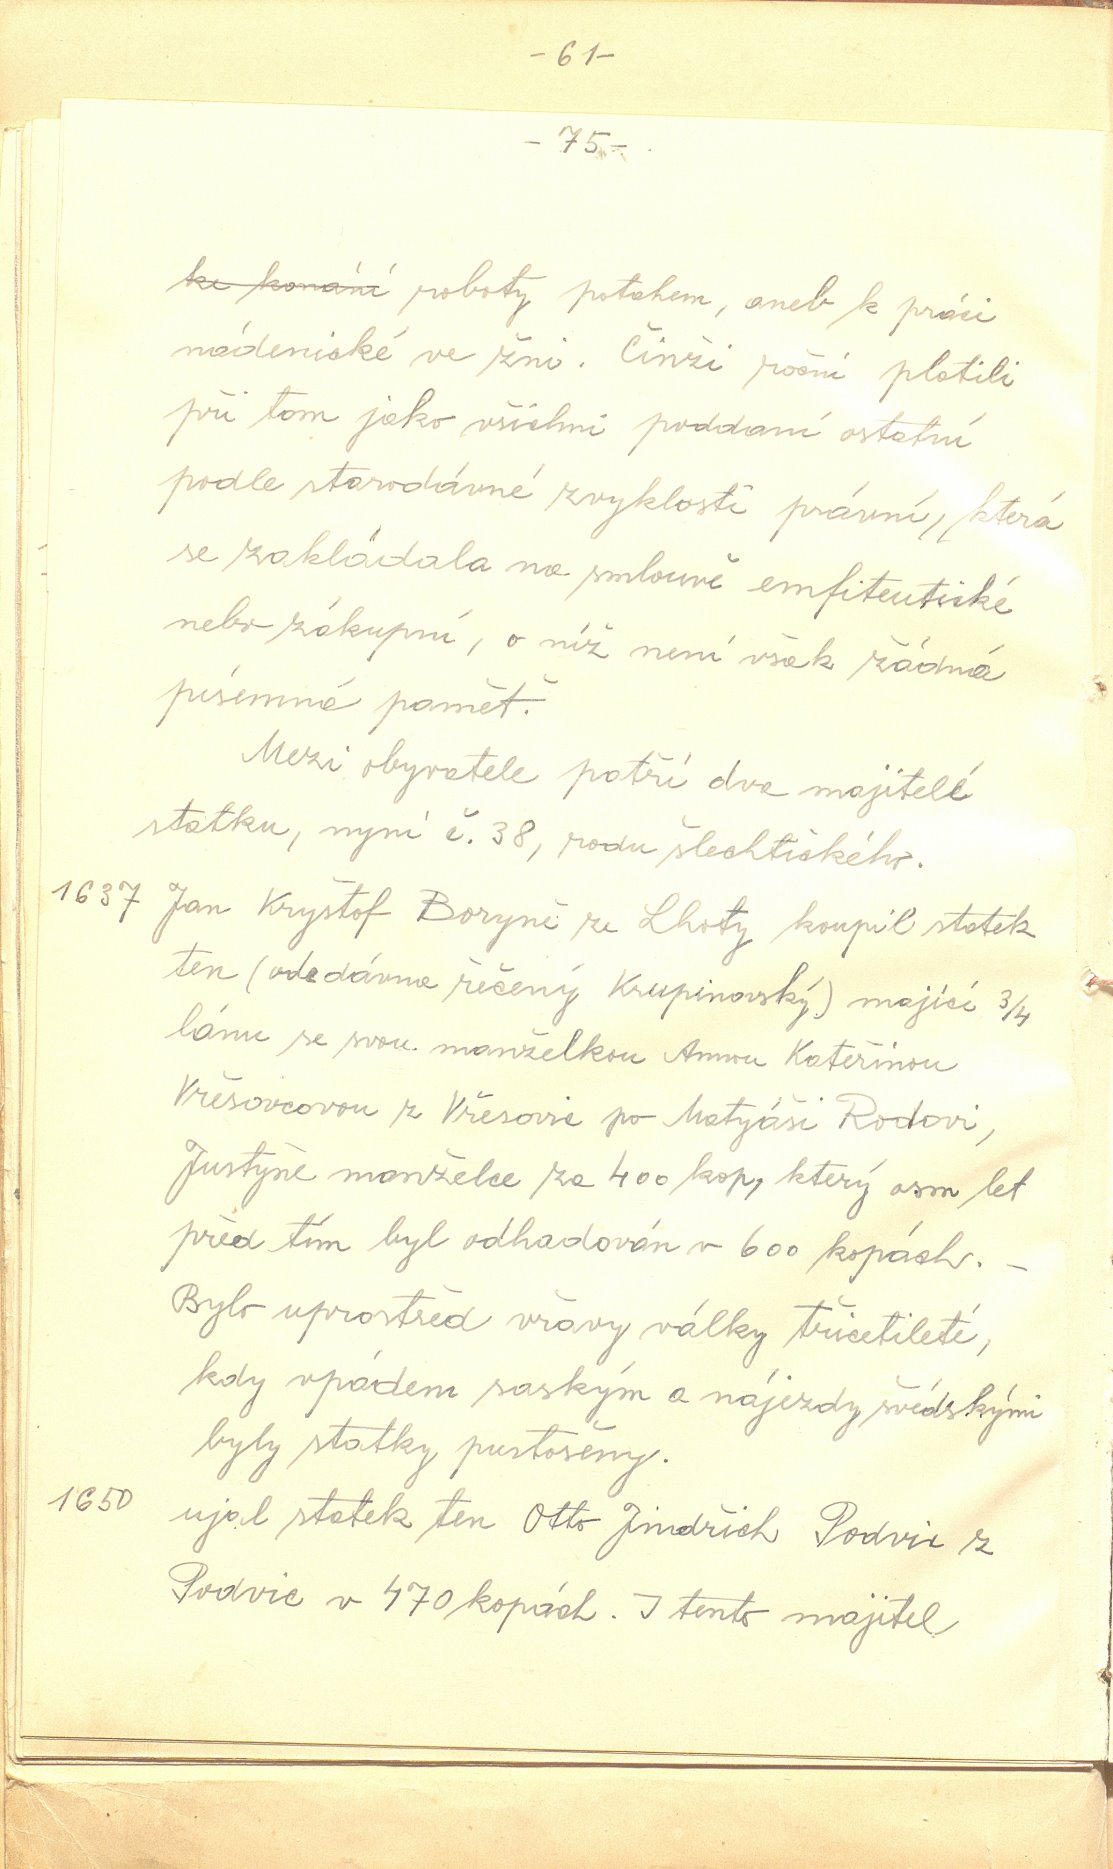 - 61 -
- 75 -
ke konání roboty potahem, aneb k práci
nádenické ve žni. Činži roční platili
při tom jako všichni poddaní ostatní
podle starodávné zvyklosti právní, která
se zakládala na smlouvě emfiteutické
nebo zákupní, o níž není však žádná
písemná paměť.
Mezi obyvatele patří dva majitelé
statku, nyní č. 38, rodu šlechtického.
1637 Jan Kryštof Boryně ze Lhoty koupil statek
ten (odedávna řečený Krupinovský) mající 3/4
lánu se svou manželkou Annou Kateřinou
Vřesovcovou z Vřesovic po Matyáši Rodovi,
Justýně manželce za 400 kop, který osm let
před tím byl odhadován v 600 kopách. -
Bylo uprostřed vřavy války třicetileté,
kdy vpádem saským a nájezdy švédskými
byly statky pustošeny.
1650 ujal statek ten Otto Jindřich Podvic z
Podvic v 470 kopách. I tento majitel